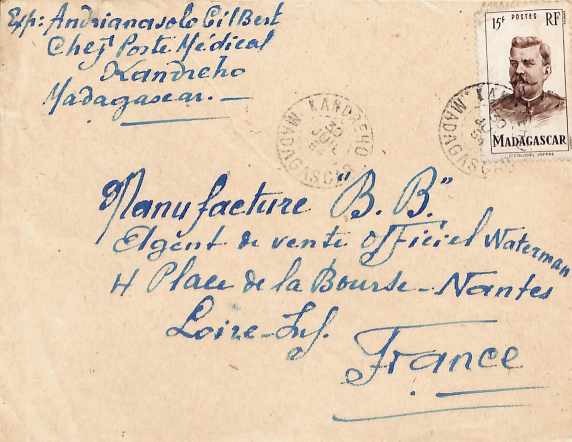 Exp: Andrianasolo Gilbert
Chef Poste Médical
Kandreho
Madagascar. —
15F POSTES RF
MADAGASCAR
COLONEL JOFFRE
KANDREHO
30
MADAGASCAR
Manufacture "B. B."
Agent de vente officiel Waterman
4 Place de la Bourse - Nantes
Loire-Inf.
France